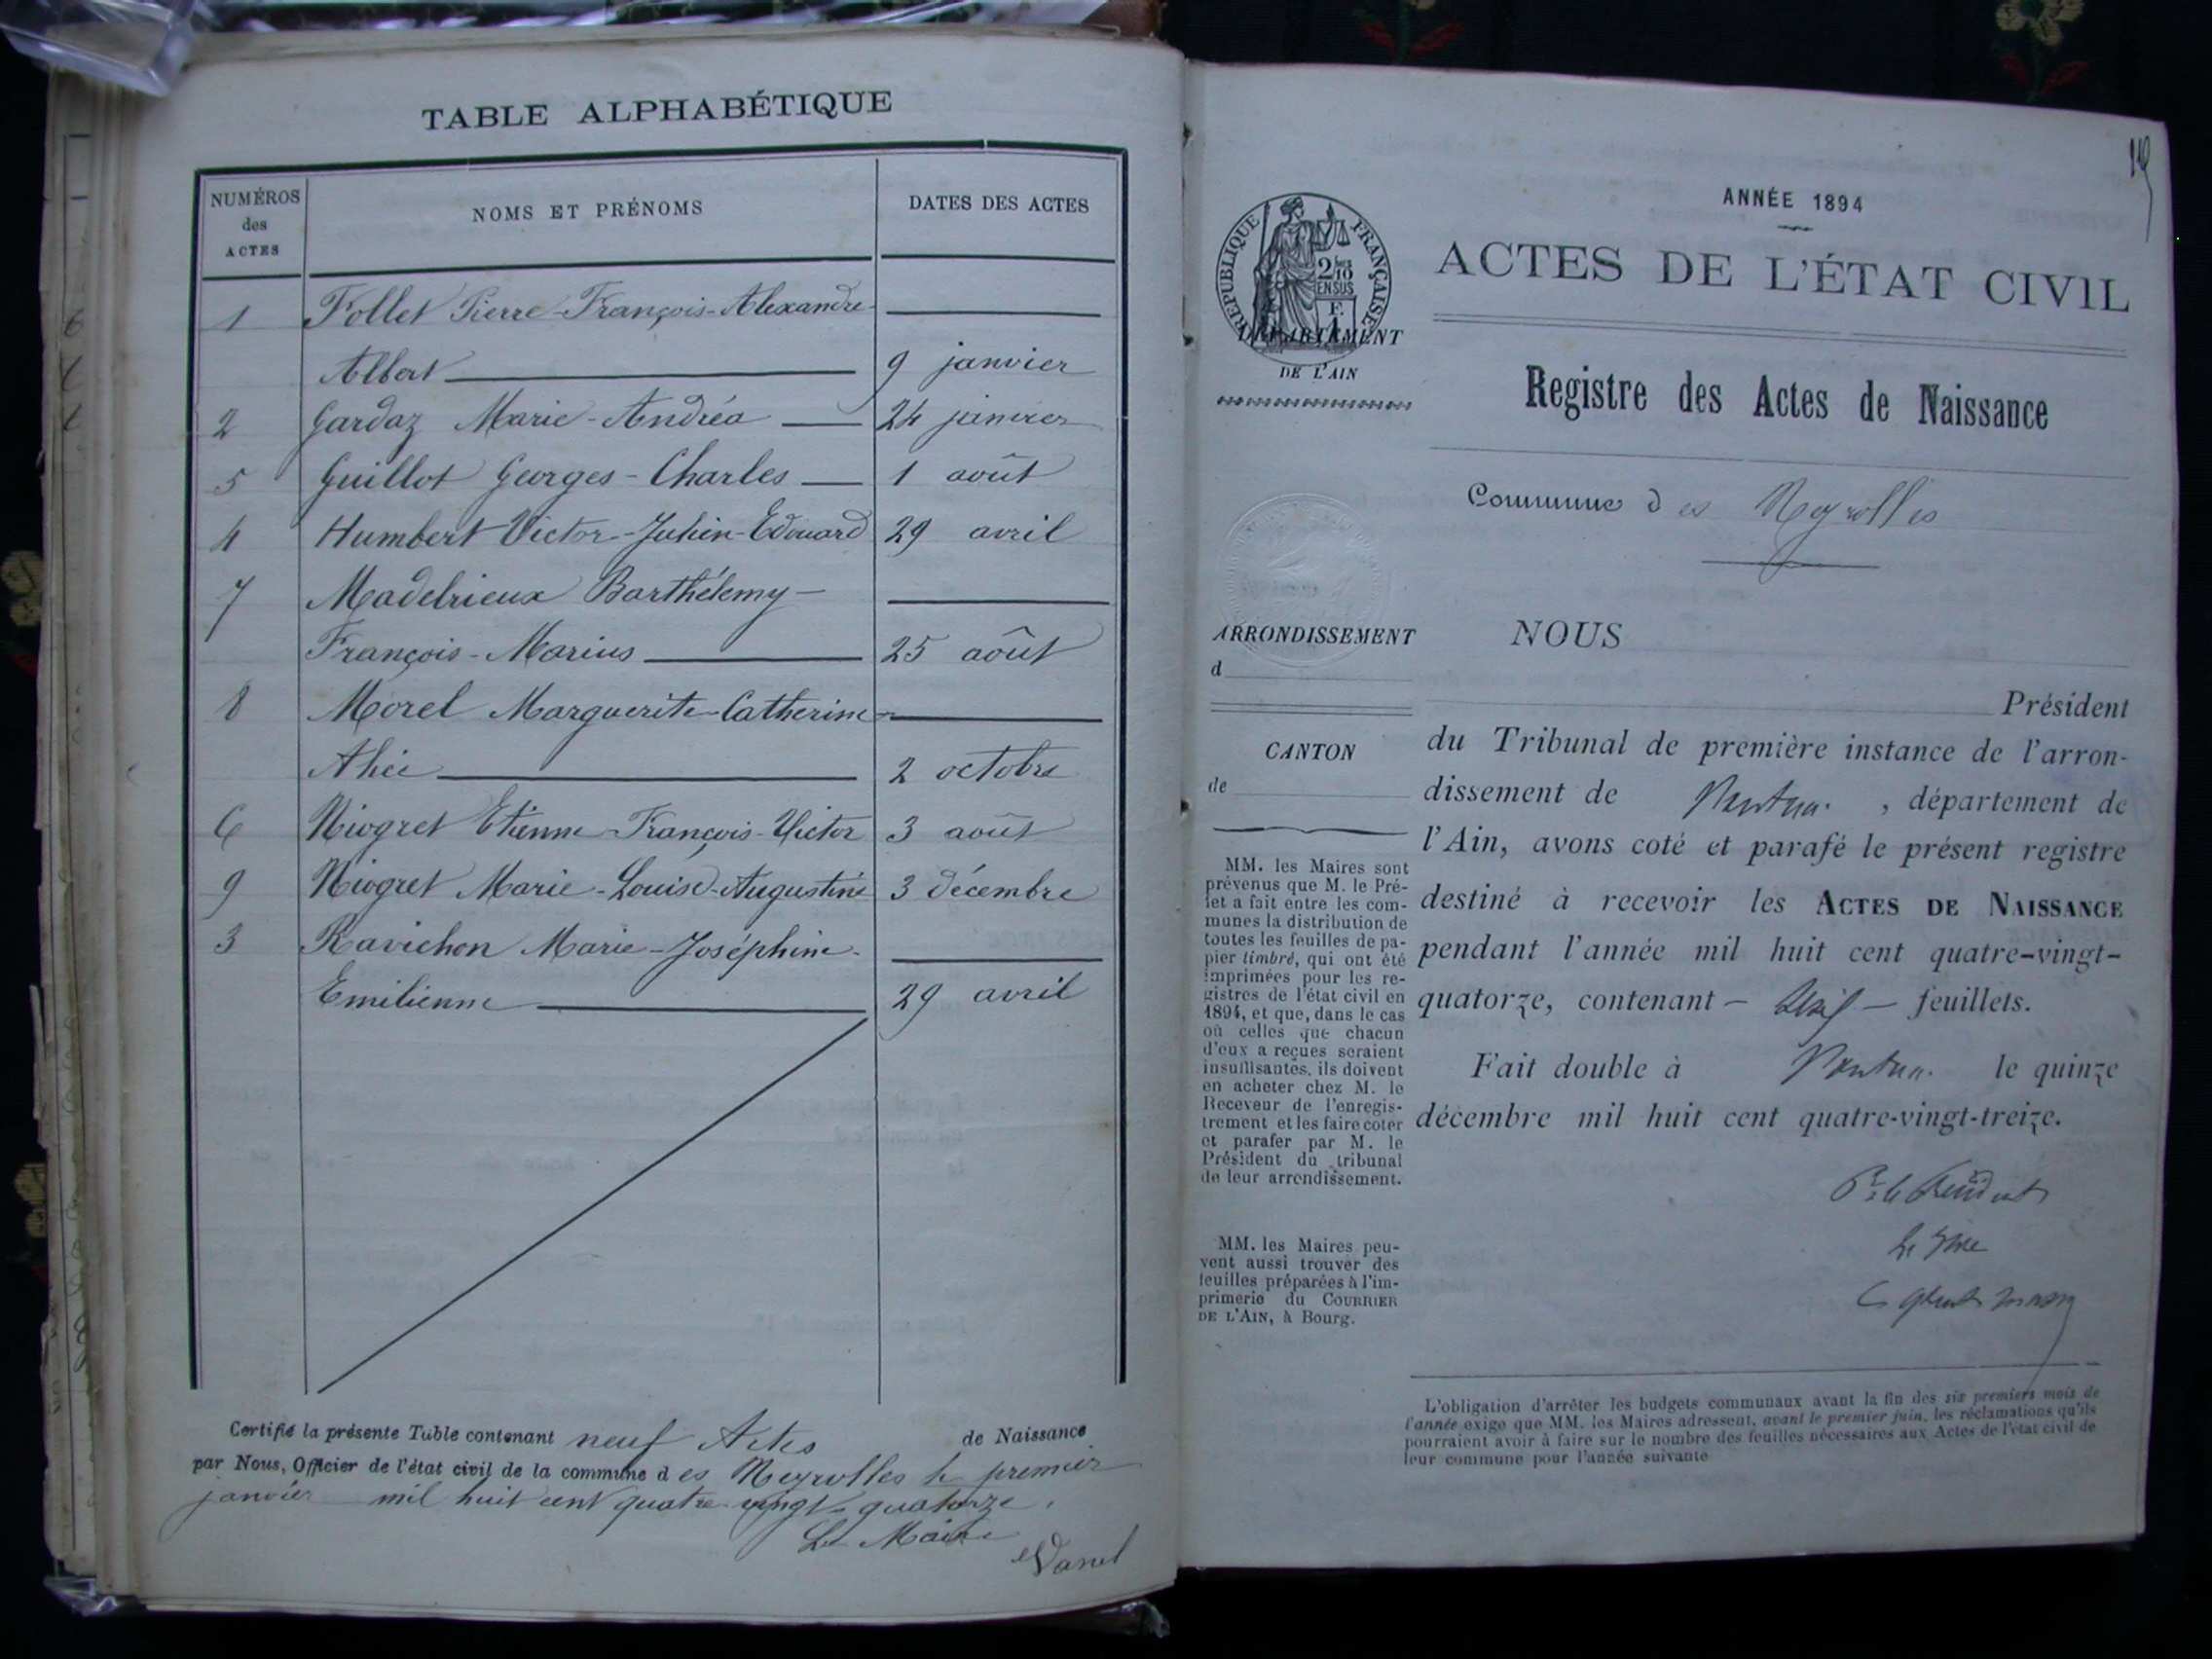 TABLE ALPHABÉTIQUE
NUMÉROS des ACTES
NOMS ET PRÉNOMS
DATES DES ACTES
1 Follet Pierre-François-Alexandre-
Albert 9 janvier
2 Gardaz Marie-Andréa 24 janvier
5 Guillot Georges-Charles 1 août
4 Humbert Victor-Julien-Edouard 29 avril
7 Madelrieux Barthélemy-
François-Marius 25 août
8 Morel Marguerite-Catherine-
Alice 2 octobre
6 Niogret Etienne-François-Victor 3 août
9 Niogret Marie-Louise-Augustine 3 décembre
3 Ravichon Marie-Joséphine-
Emilienne 29 avril
Certifié la présente Table contenant neuf Actes de Naissance
par Nous, Officier de l'état civil de la commune d es Neyrolles le premier
janvier mil huit cent quatre-vingt-quatorze.
Le Maire
ANNÉE 1894
ACTES DE L'ÉTAT CIVIL
RÉPUBLIQUE FRANÇAISE
2/10 EN SUS
F.
1
DÉPARTEMENT
DE L'AIN
Registre des Actes de Naissance
Commune d es Neyrolles
ARRONDISSEMENT
d
CANTON
de
NOUS
Président
du Tribunal de première instance de l'arron-
dissement de Nantua , département de
l'Ain, avons coté et parafé le présent registre
destiné à recevoir les ACTES DE NAISSANCE
pendant l'année mil huit cent quatre-vingt-
quatorze, contenant — — feuillets.
Fait double à Nantua le quinze
décembre mil huit cent quatre-vingt-treize.
Pr le Président
Le Juge
MM. les Maires sont
prévenus que M. le Pré-
fet a fait entre les com-
munes la distribution de
toutes les feuilles de pa-
pier timbré, qui ont été
imprimées pour les re-
gistres de l'état civil en
1894, et que, dans le cas
où celles que chacun
d'eux a reçues seraient
insuffisantes, ils doivent
en acheter chez M. le
Receveur de l'enregis-
trement et les faire coter
et parafer par M. le
Président du tribunal
de leur arrondissement.
MM. les Maires peu-
vent aussi trouver des
feuilles préparées à l'im-
primerie du COURRIER
DE L'AIN, à Bourg.
L'obligation d'arrêter les budgets communaux avant la fin des six premiers mois de
l'année exige que MM. les Maires adressent, avant le premier juin, les réclamations qu'ils
pourraient avoir à faire sur le nombre des feuilles nécessaires aux Actes de l'état civil de
leur commune pour l'année suivante